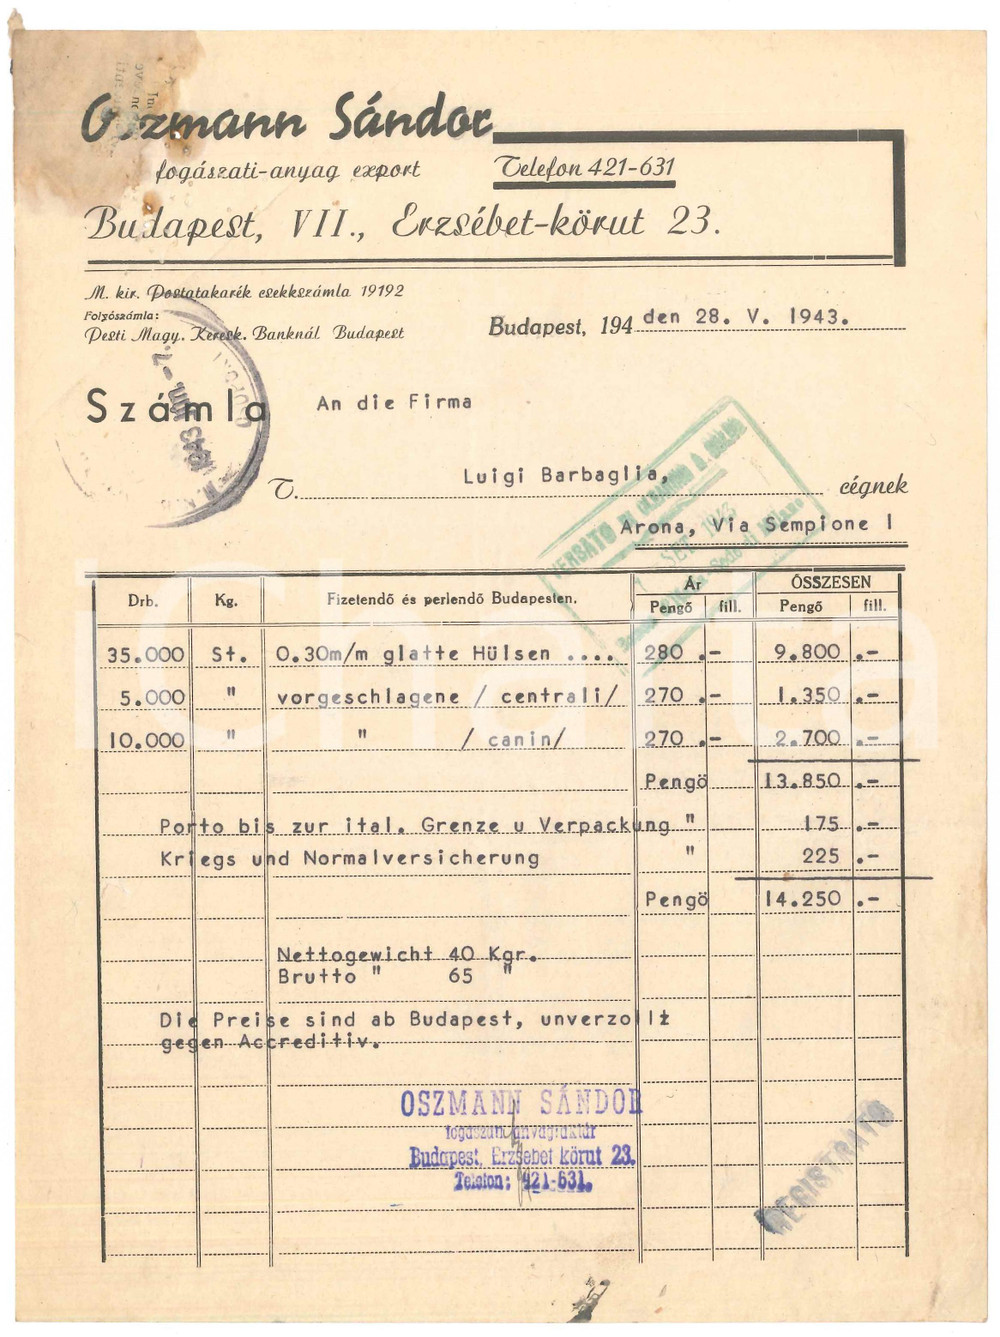 Oszmann Sándor
fogászati-anyag export
Telefon 421-631
Budapest, VII., Erzsébet-körut 23.
M. kir. Postatakarék csekkszámla 19192
Folyószámla:
Pesti Magy. Keresk. Banknál Budapest
Budapest, 194 den 28. V. 1943.
Számla
An die Firma
T. Luigi Barbaglia, cégnek
Arona, Via Sempione 1
Drb. Kg. Fizetendő és perlendő Budapesten. Ár ÖSSZESEN
Pengő fill. Pengő fill.
35.000 St. 0.30m/m glatte Hülsen .... 280 .- 9.800 .-
5.000 " vorgeschlagene / centrali/ 270 .- 1.350 .-
10.000 " " / canin/ 270 .- 2.700 .-
Pengö 13.850 .-
Porto bis zur ital. Grenze u Verpackung " 175 .-
Kriegs und Normalversicherung " 225 .-
Pengö 14.250 .-
Nettogewicht 40 Kgr.
Brutto " 65 "
Die Preise sind ab Budapest, unverzollt
gegen Accreditiv.
OSZMANN SÁNDOR
Budapest, Erzsébet körut 23.
Telefon: 421-631.
REGISTRATO
iCharta